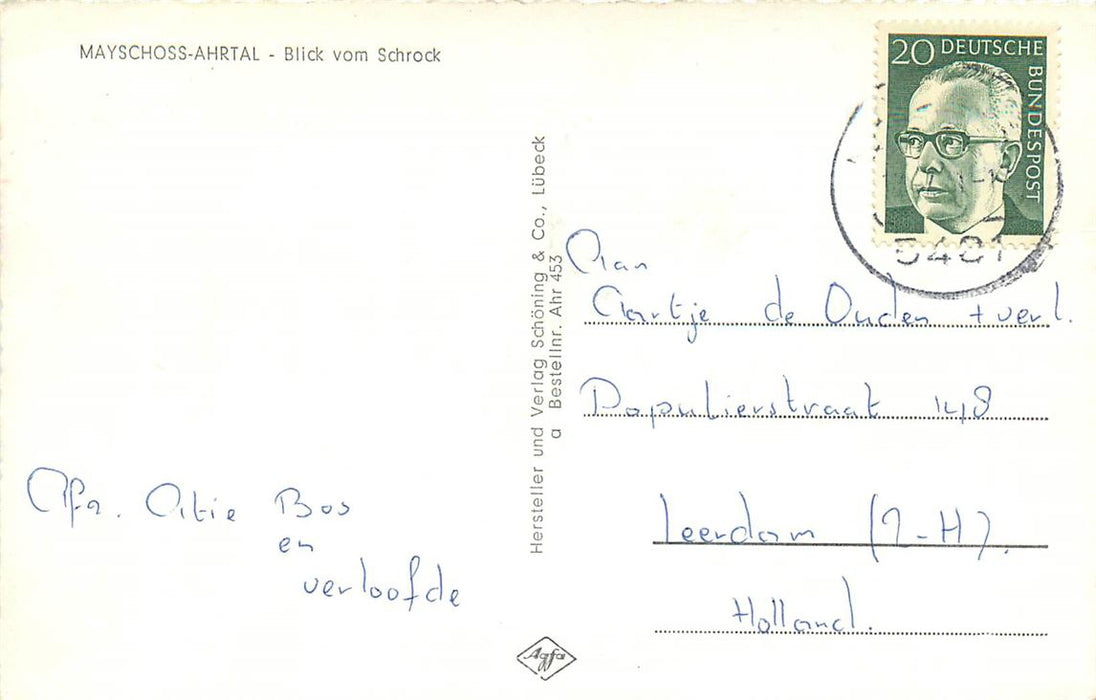 MAYSCHOSS-AHRTAL - Blick vom Schrock
20 DEUTSCHE BUNDESPOST
5481
Hersteller und Verlag Schöning & Co., Lübeck
a Bestellnr. Ahr 453
Aan
Aartje de Ouden + verl.
Populierstraat 148
Leerdam (Z-H).
Holland.
Afz. Atie Bos
en
verloofde
Agfa